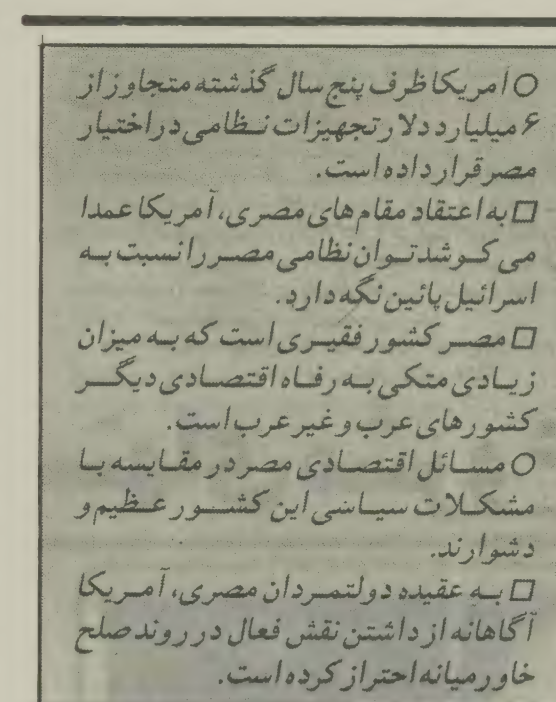 ○ آمریکا ظرف پنج سال گذشته متجاوز از
۶ میلیارد دلار تجهیزات نظامی در اختیار
مصر قرار داده است.
□ به اعتقاد مقام های مصری، آمریکا عمدا
می کوشد توان نظامی مصر را نسبت به
اسرائیل پائین نگه دارد.
□ مصر کشور فقیری است که به میزان
زیادی متکی به رفاه اقتصادی دیگر
کشورهای عرب و غیر عرب است.
○ مسائل اقتصادی مصر در مقایسه با
مشکلات سیاسی این کشور عظیم و
دشوارند.
□ به عقیده دولتمردان مصری، آمریکا
آگاهانه از داشتن نقش فعال در روند صلح
خاورمیانه احتراز کرده است.